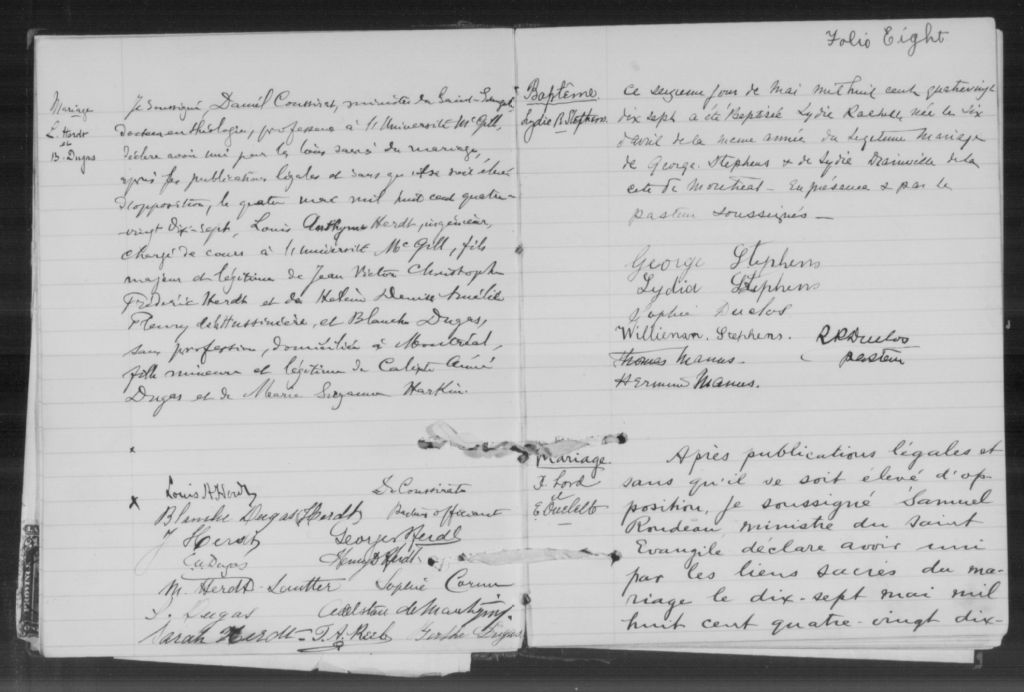 Mariage
L. Herdt
et
B. Dugas
Je soussigné Daniel Coussirat, ministre du Saint-Evangile
docteur en théologie, professeur à l'Université McGill,
déclare avoir uni par les liens sacrés du mariage,
après les publications légales et sans qu'il se soit élevé
d'opposition, le quatre mai mil huit cent quatre-
vingt dix-sept, Louis Anthyme Herdt, ingénieur,
chargé de cours à l'Université McGill, fils
majeur et légitime de Jean Victor Christophe
Fréderic Herdt et de Helène Denise Amélie
Fleury de la Hussinière, et Blanche Dugas,
sans profession, domiciliée à Montréal,
fille mineure et légitime de Calixte Aimé
Dugas et de Marie Suzanne Harkin.
Louis A. Herdt D. Coussirat
Blanche Dugas Herdt officiant
J Herdt Georges Herdt
C A Dugas Henry Herdt
M. Herdt- Sophie Cornu
S. Dugas de Martigny
Sarah Herdt - T. A. Dugas
Folio Eight
Baptême.
Lydie R. Stephens
Ce seizieme jour de Mai mil huit cent quatrevingt
dix sept a été Baptisée Lydie Rachel, née le six
d'avril de la meme année du legitime Mariage
de George Stephens & de Lydie Drainville de la
cité de Montreal - En présence & par le
pasteur soussignés -
George Stephens
Lydia Stephens
Sophie Duclos
Stephens. R P Duclos
Thomas Manus. pasteur
Hermine Manus.
Mariage.
F. Lord
et
E. Ouellette
Après publications légales et
sans qu'il se soit élevé d'op-
position, Je soussigné Samuel
Rondeau, ministre du Saint
Evangile déclare avoir uni
par les liens sacrés du ma-
riage le dix-sept mai mil
huit cent quatre-vingt dix-